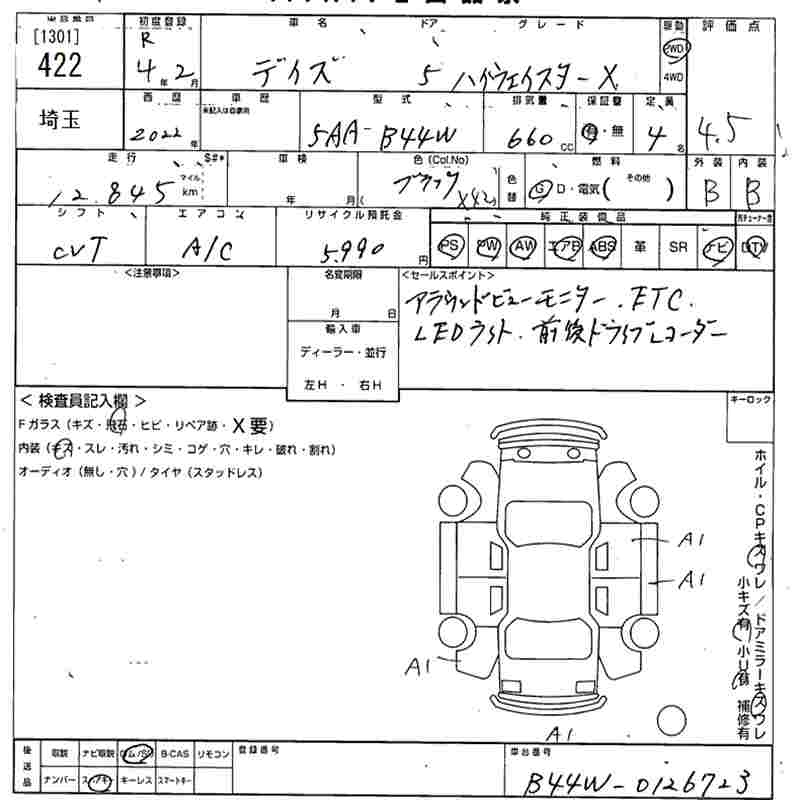 初度登録 車名 ドア グレード 駆動 評価点
[1301] R 2WD
422 4年2月 デイズ 5 ハイウェイスターX 4WD
西暦 車歴 型式 排気量 保証書 定員
埼玉 ※記入は自家用
2022年 5AA-B44W 660cc 有・無 4名 4.5
走行 $#* 車検 色(Col.No) 燃料 外装 内装
12,845 マイル km 年 月 ブラック 色替 G D・電気( その他 ) B B
シフト エアコン リサイクル預託金 純正装備品
CVT A/C 5,990円 PS PW AW エアB ABS 革 SR ナビ DTV
<注意事項> 名変期限 <セールスポイント>
月 日 アラウンドビューモニター.ETC.
輸入車 LEDライト.前後ドライブレコーダー
ディーラー・並行
左H・右H
<検査員記入欄> キーロック
Fガラス(キズ・飛石・ヒビ・リペア跡・X要)
内装(キズ・スレ・汚れ・シミ・コゲ・穴・キレ・破れ・割れ)
オーディオ(無し・穴)/タイヤ(スタッドレス)
ホイル・CPキズワレ/ドアミラーキズワレ
小キズ有 小U有 補修有
A1
A1
A1
A1
後送品 取説 ナビ取説 B-CAS リモコン 登録番号 車台番号
ナンバー キーレス スマートキー B44W-0126723